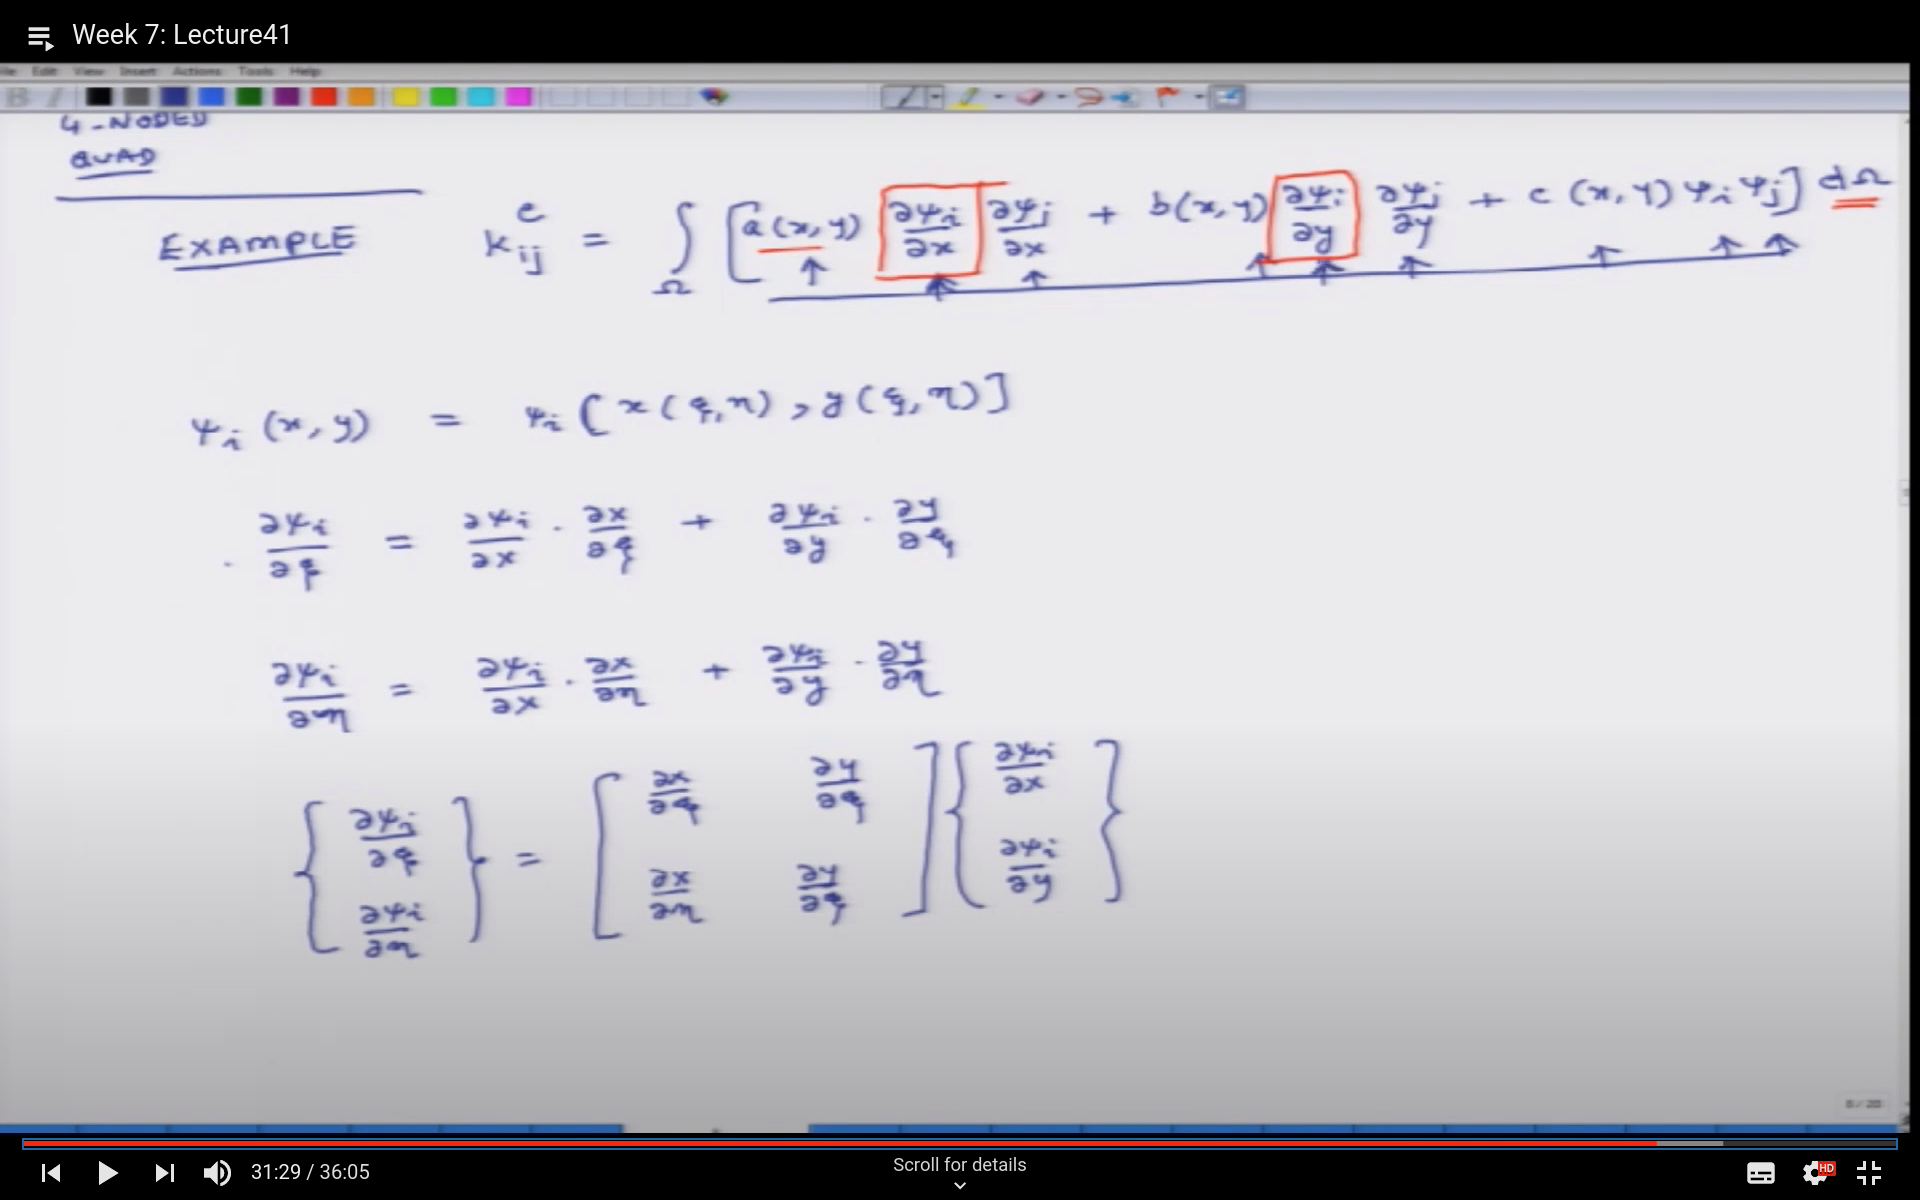 Week 7: Lecture41
File Edit View Insert Actions Tools Help
4-NODED
QUAD
EXAMPLE k_ij^e = ∫_Ω [a(x,y) ∂ψi/∂x ∂ψj/∂x + b(x,y) ∂ψi/∂y ∂ψj/∂y + c(x,y) ψi ψj] dΩ
ψi (x,y) = ψi [x(ξ,η), y(ξ,η)]
∂ψi/∂ξ = ∂ψi/∂x · ∂x/∂ξ + ∂ψi/∂y · ∂y/∂ξ
∂ψi/∂η = ∂ψi/∂x · ∂x/∂η + ∂ψi/∂y · ∂y/∂η
{∂ψi/∂ξ ∂ψi/∂η} = [∂x/∂ξ ∂y/∂ξ ∂x/∂η ∂y/∂ξ] {∂ψi/∂x ∂ψi/∂y}
31:29 / 36:05
Scroll for details
HD